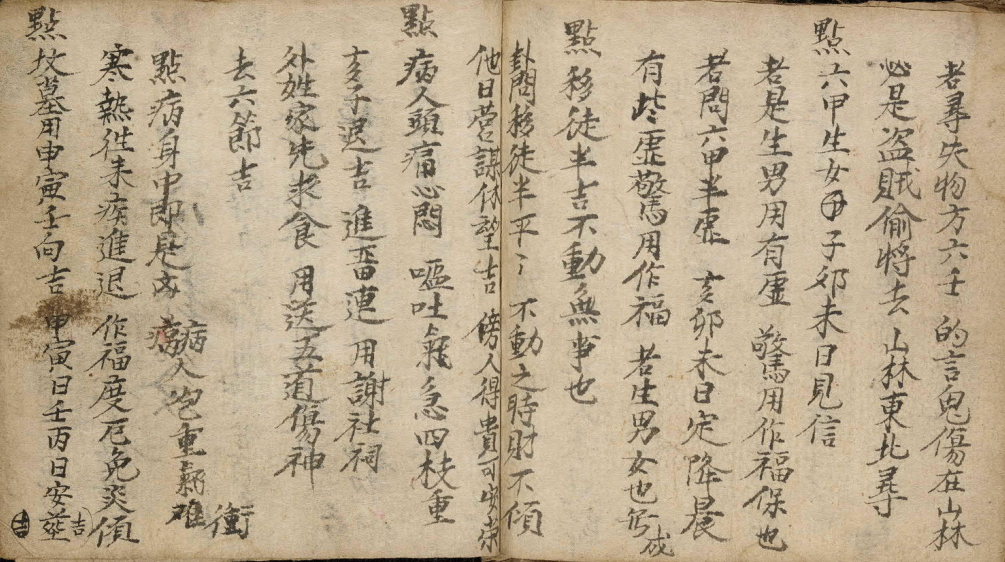 者尋失物方六壬 的言鬼傷在山林
必是盜賊偷將去 山林東北尋
點六甲生女 子卯未日見信
者是生男用有虛 驚用作福保也
若問六甲半虛 亥卯未日定降晨
有些虛驚用作福 若生男女也
點移徒半吉不動無事也
卦問移徒半平〻 不動之時財不傾
他日營謀休望吉 傍人得貴可安荣
點病人頭痛心悶 嘔吐氣急四枝重
亥子退吉 進 用謝社祠
外姓家先求食 用送五道傷神
去六節吉
點病身中即是 病人 重 难 衝
寒熱徃未病進退 作福度厄免災傾
點坟墓用申寅壬向吉 甲寅日壬丙日安塟吉
吉